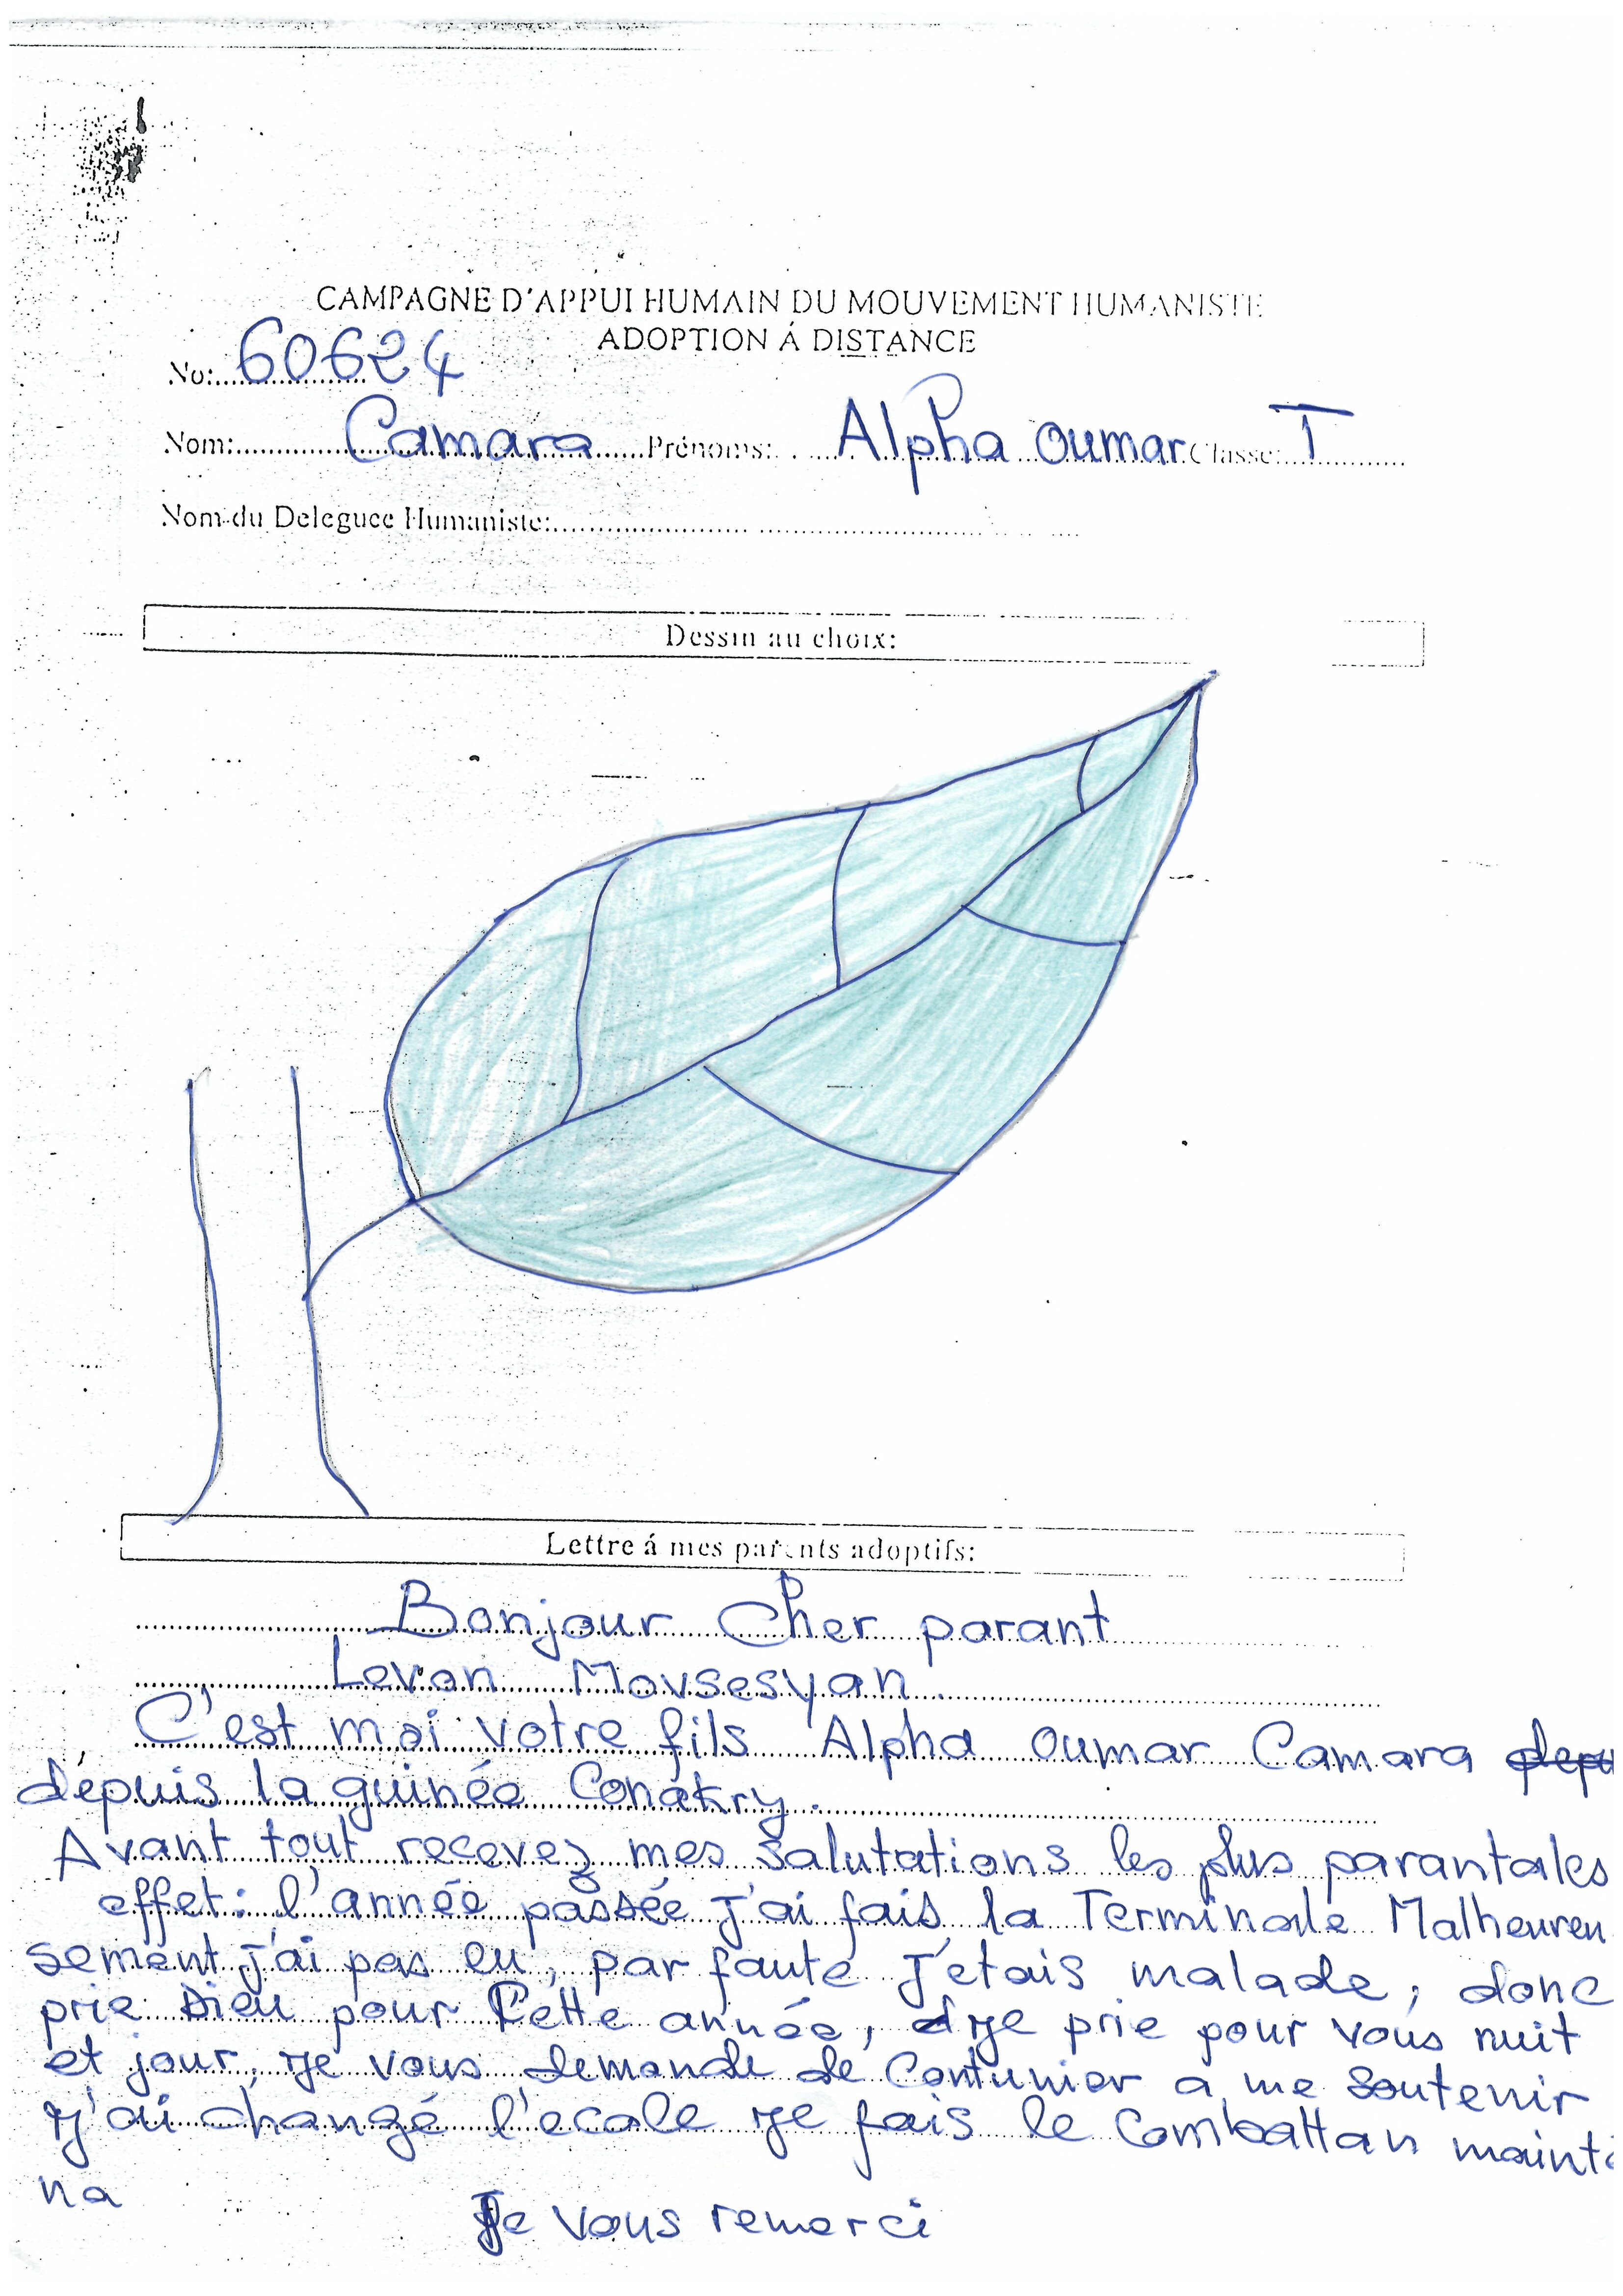 CAMPAGNE D'APPUI HUMAIN DU MOUVEMENT HUMANISTE
ADOPTION Á DISTANCE
No: 60624
Nom: Camara Prénoms: Alpha Oumar Classe: T
Nom du Deleguee Humaniste:
Dessin au choix:
Lettre á mes parents adoptifs:
Bonjour Cher parant
Levon Movsesyan.
C'est moi votre fils Alpha Oumar Camara depu
dépuis la guinée Conakry.
Avant tout recevez mes salutations les plus parantales
effet: l'année passée j'ai fais la Terminale Malheureu
sement j'ai pas eu, par faute j'étais malade, donc
prie Dieu pour Cette année, je prie pour vous nuit
et jour, je vous demande de Contunier a me soutenir
j'ai changé l'ecole je fais le Combattan maint
na
Je vous remerci